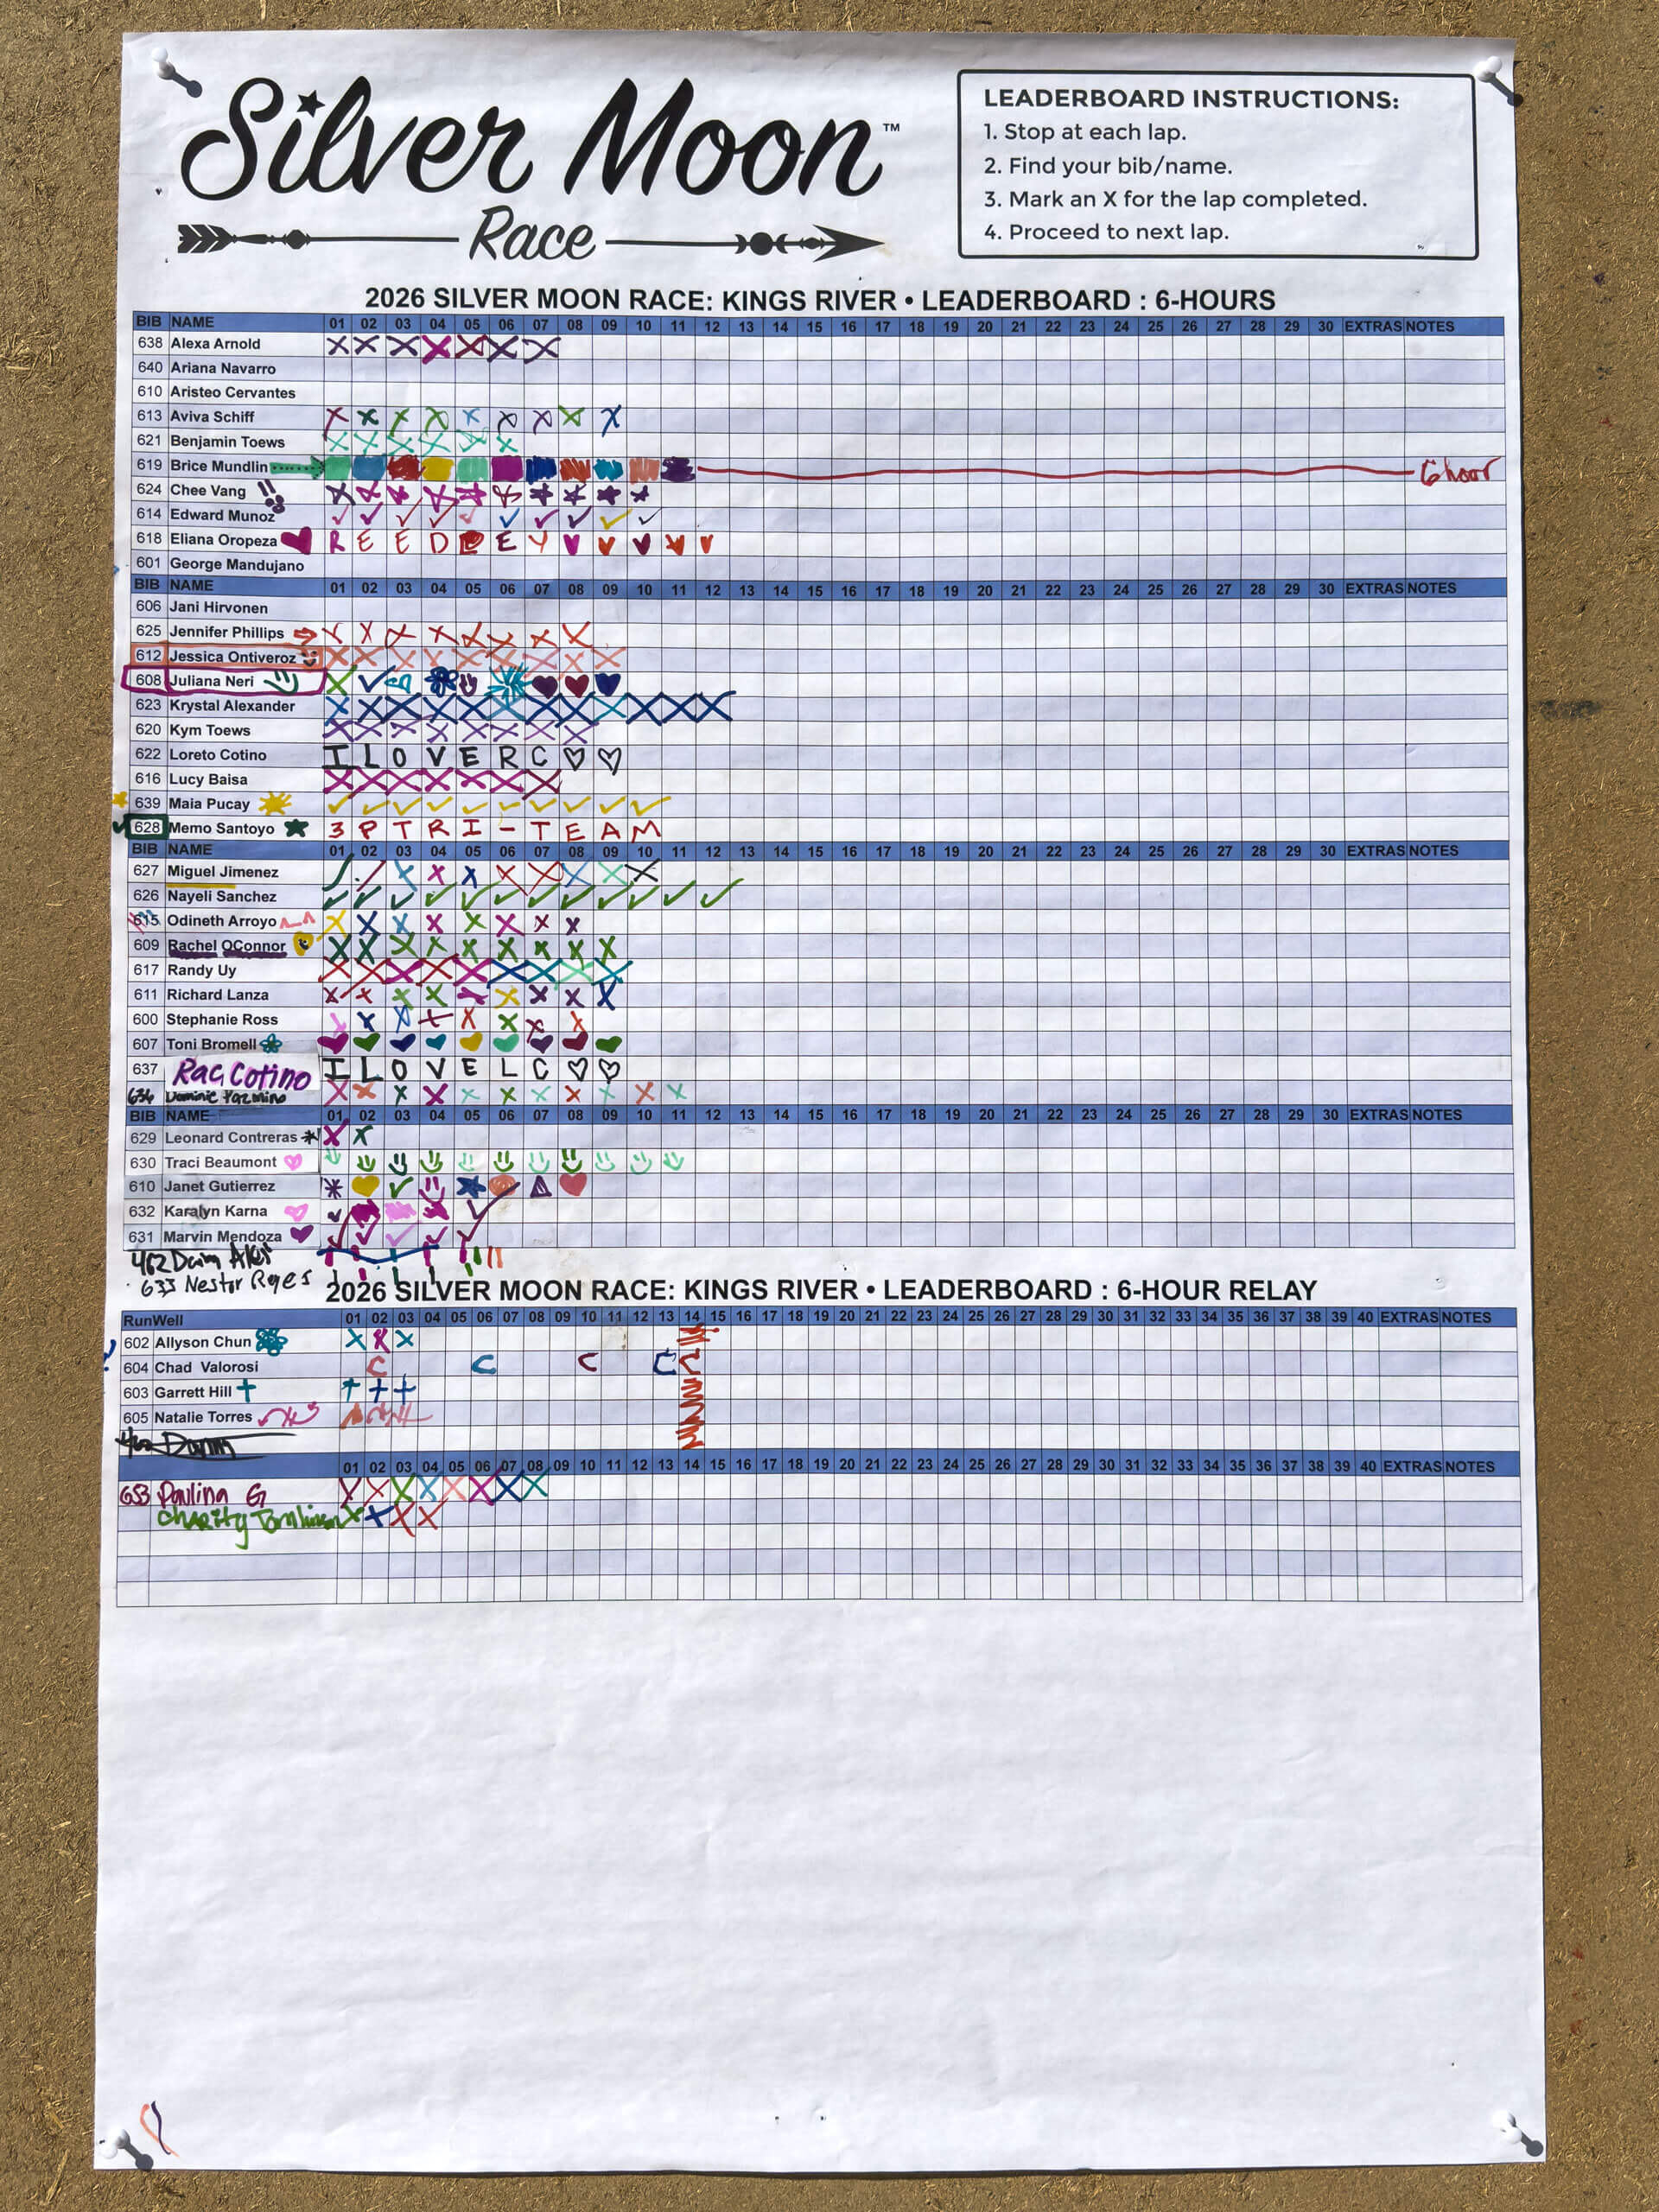 Silver Moon™
Race
LEADERBOARD INSTRUCTIONS:
1. Stop at each lap.
2. Find your bib/name.
3. Mark an X for the lap completed.
4. Proceed to next lap.
2026 SILVER MOON RACE: KINGS RIVER • LEADERBOARD : 6-HOURS
BIB NAME 01 02 03 04 05 06 07 08 09 10 11 12 13 14 15 16 17 18 19 20 21 22 23 24 25 26 27 28 29 30 EXTRAS NOTES
638 Alexa Arnold X X X X X X X
640 Ariana Navarro
610 Aristeo Cervantes
613 Aviva Schiff X X X X X X X X X
621 Benjamin Toews X X X X X X
619 Brice Mundlin 6 hour
624 Chee Vang
614 Edward Munoz ✓ ✓ ✓ ✓ ✓ ✓ ✓ ✓ ✓ ✓
618 Eliana Oropeza R E E D L E Y
601 George Mandujano
BIB NAME 01 02 03 04 05 06 07 08 09 10 11 12 13 14 15 16 17 18 19 20 21 22 23 24 25 26 27 28 29 30 EXTRAS NOTES
606 Jani Hirvonen
625 Jennifer Phillips X X X X X X X X
612 Jessica Ontiveroz X X X X X X X X X
608 Juliana Neri X ✓
623 Krystal Alexander X X X X X X X X X X X X
620 Kym Toews X X X X X X X X
622 Loreto Cotino I L O V E R C ♡ ♡
616 Lucy Baisa X X X X X X X
639 Maia Pucay ✓ ✓ ✓ ✓ ✓ ✓ ✓ ✓ ✓ ✓
628 Memo Santoyo 3 P T R I - T E A M
BIB NAME 01 02 03 04 05 06 07 08 09 10 11 12 13 14 15 16 17 18 19 20 21 22 23 24 25 26 27 28 29 30 EXTRAS NOTES
627 Miguel Jimenez X X X X X X X X
626 Nayeli Sanchez ✓ ✓ ✓ ✓ ✓ ✓ ✓ ✓ ✓ ✓ ✓ ✓
615 Odineth Arroyo X X X X X X X X
609 Rachel OConnor X X X X X X X X X
617 Randy Uy X X X X X X X X X
611 Richard Lanza X X X X X X X X X
600 Stephanie Ross X X X X X X X X
607 Toni Bromell
637 Rac Cotino I L O V E L C ♡ ♡
636 Dominic X X X X X X X X X X X
BIB NAME 01 02 03 04 05 06 07 08 09 10 11 12 13 14 15 16 17 18 19 20 21 22 23 24 25 26 27 28 29 30 EXTRAS NOTES
629 Leonard Contreras X X
630 Traci Beaumont
610 Janet Gutierrez
632 Karalyn Karna
631 Marvin Mendoza
462
633 Nestor Reyes
2026 SILVER MOON RACE: KINGS RIVER • LEADERBOARD : 6-HOUR RELAY
RunWell 01 02 03 04 05 06 07 08 09 10 11 12 13 14 15 16 17 18 19 20 21 22 23 24 25 26 27 28 29 30 31 32 33 34 35 36 37 38 39 40 EXTRAS NOTES
602 Allyson Chun X X X
604 Chad Valorosi C C C C
603 Garrett Hill
605 Natalie Torres
01 02 03 04 05 06 07 08 09 10 11 12 13 14 15 16 17 18 19 20 21 22 23 24 25 26 27 28 29 30 31 32 33 34 35 36 37 38 39 40 EXTRAS NOTES
653 Paulina G X X X X X X X X
Charity Tomlinson X X X X